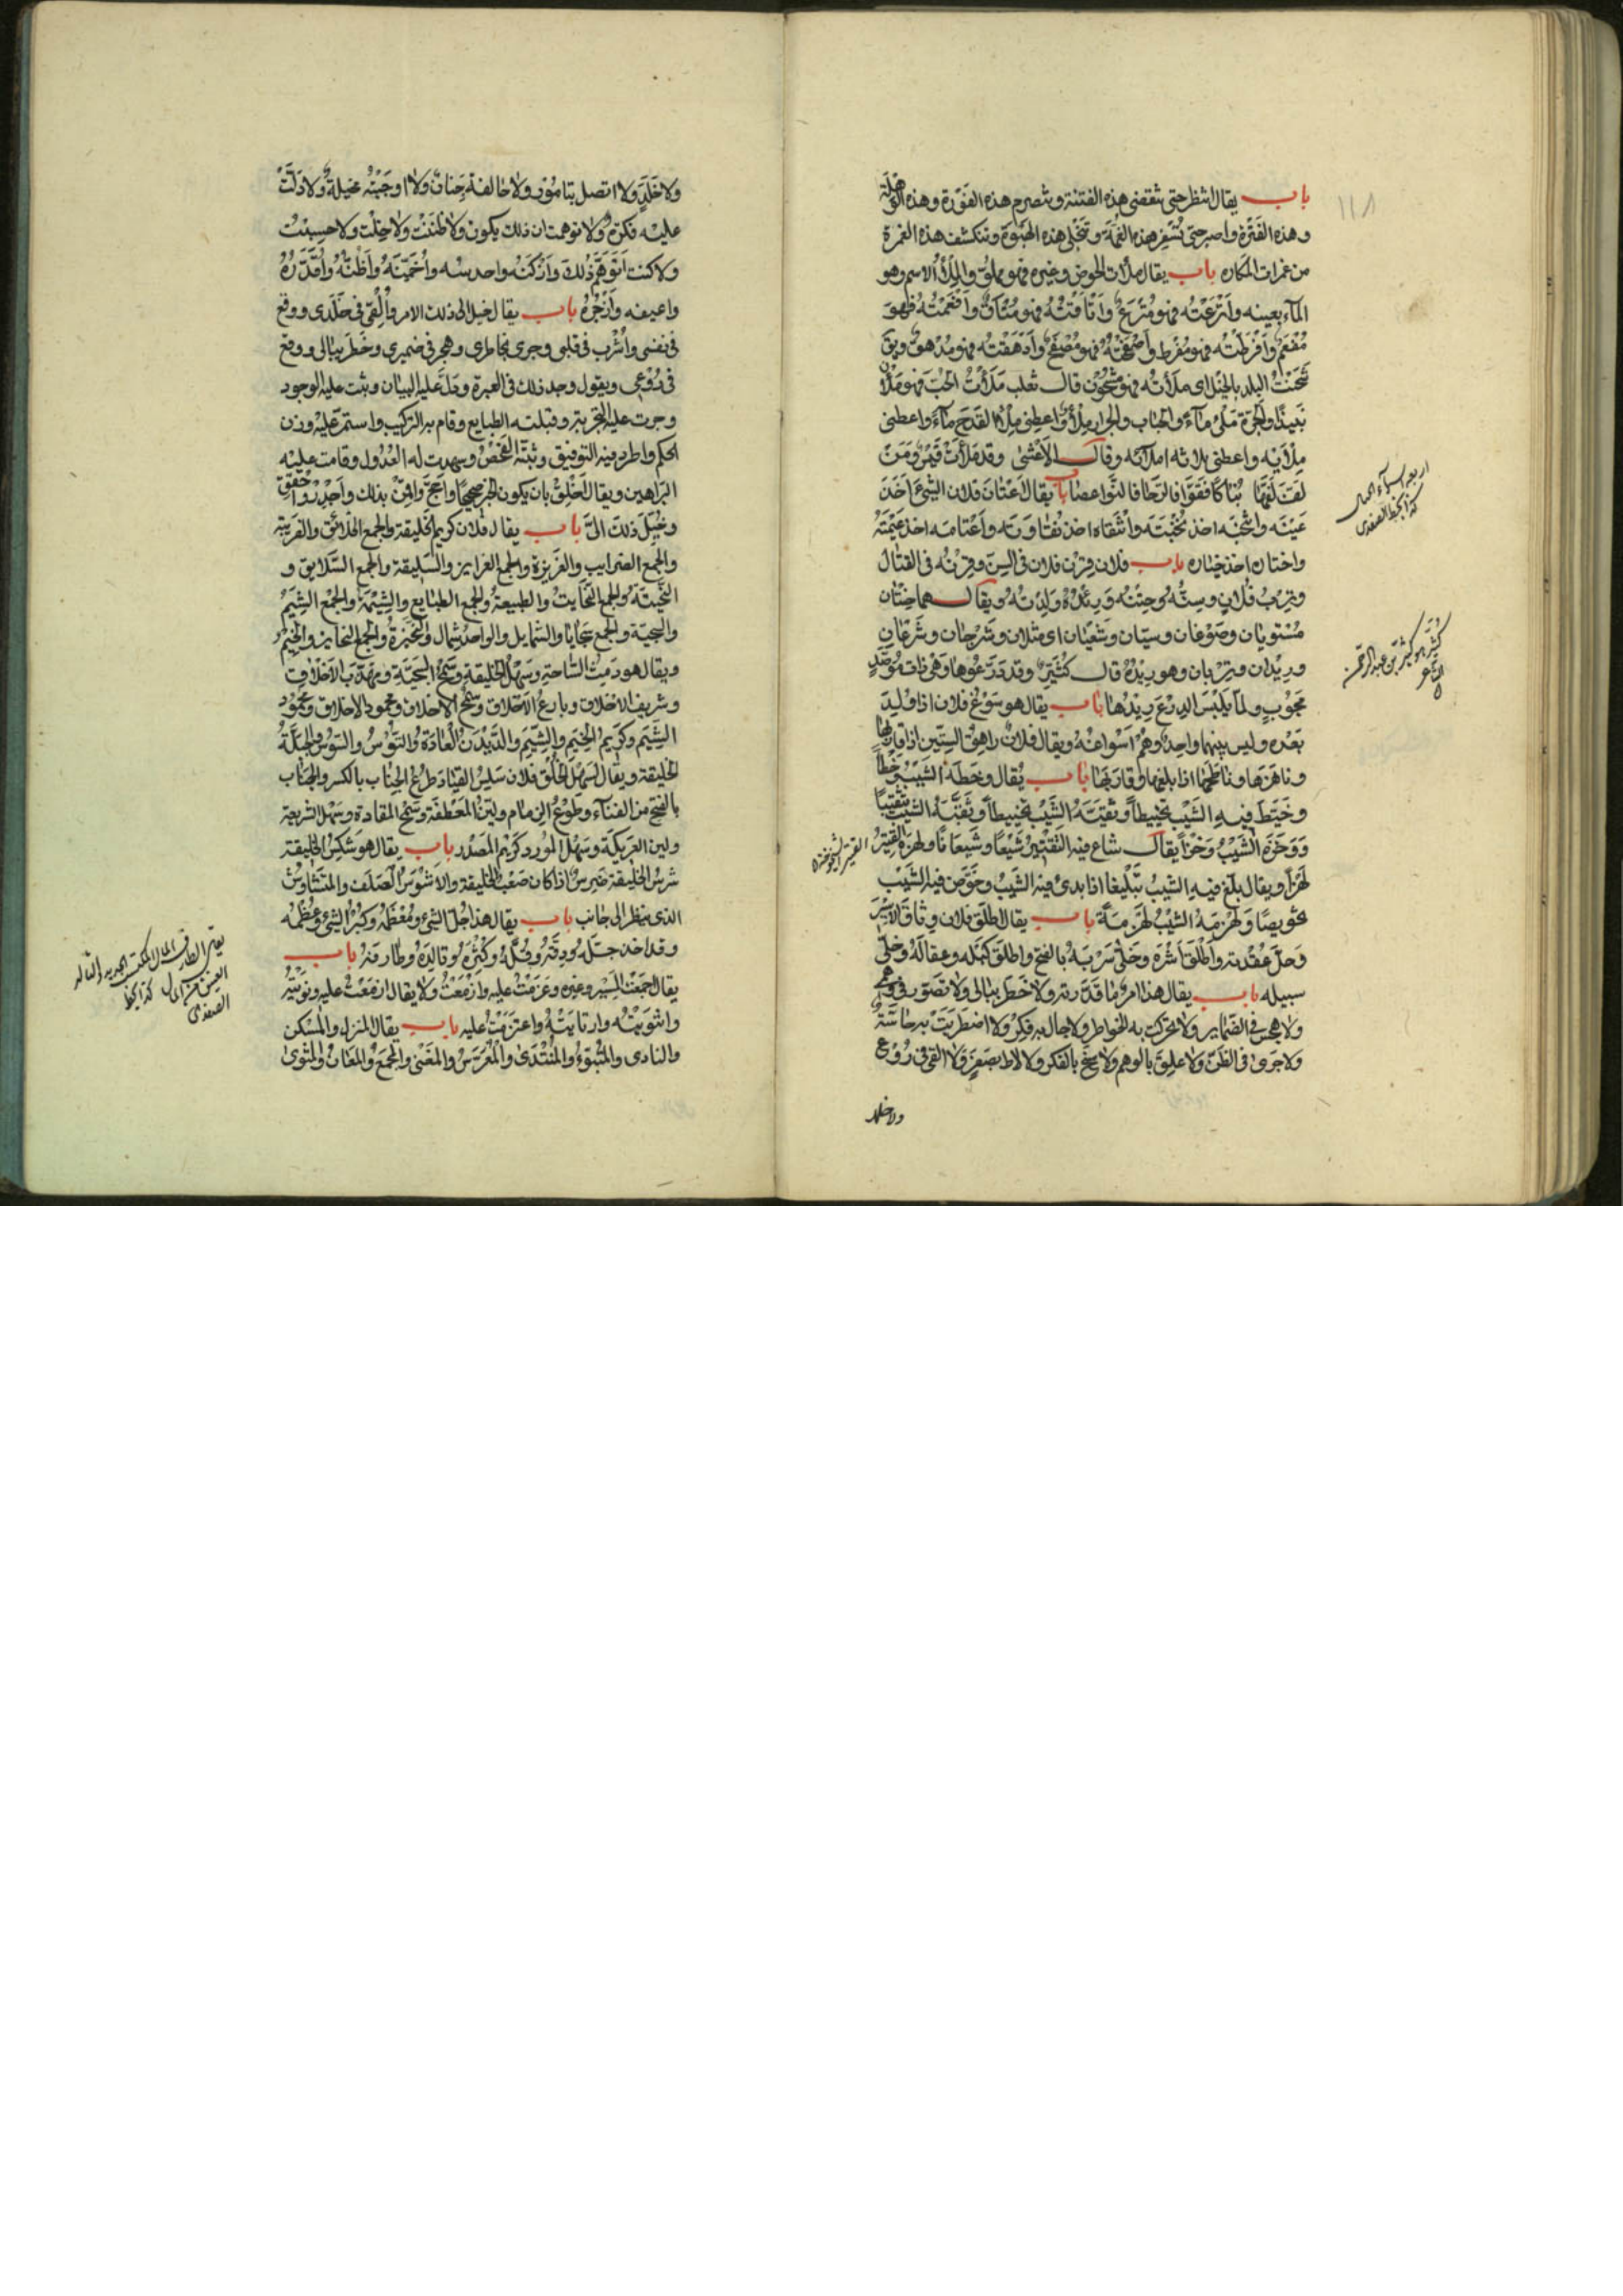 ١١٨
باب يقال انتظر حتى تنقضى هذه الفتنة وتنصرم هذه الفَوْرة وهذه الوَهْلَة
وهذه الفَتْرة واصبر حتى تُسْفِر هذه الغُمَّة وتنجَلى هذه الهَبْوَة وتنكشف هذه الغمرة
من غمرات المكاره باب يقال ملأت الحوض وغيره فهو مملوّ والمِلْأُ الاسم وهو
المآء بعينه وأترَعْتُه فهو مُتْرَعٌ وأتأقْتُهُ فهو مُتْأَقٌ وأفْعَمْتُهُ فهو
مُفْعَمٌ وأفْرَطْتُه فهو مُفْرَط وأدْهَقْتُه فهو مُدْهَقٌ
شَحَنْتُ البلد بالخيل اى ملأتُه فهو مَشْحُوْن قال ثعلب مَلَأْتُ الحُبّ فهو مَلْآنُ
نَبيذًا والجَرّة مَلْئى مآءً والحِباب والجِرار مِلَاءٌ واعطِنى مِلْأَ القَدَح مآءً واعطنى
مِلْأَيْه واعطنى ثلاثة املآئه وقال الأعْشَى وقد مَلَأَتْ
باب يقال اعْتَانَ فلان الشيءَ اخَذَ
عَيْنَه وانتخبه اخذ نُخْبَتَه وانْتَقاه اخذ نُقَاوَتَه واعْتَامَه اخذ عِيْمَتَهُ
واختاره اخذ خِيَارَه باب فلان قِرْن فلان فى السِنّ وقِرْنُه فى القتال
وتِرْبُ فُلانٍ وسِنُّهُ وحِتْنُه ورِئْدُهُ ولِدَتُهُ ويقال هما حِتْنَان
مُسْتويان وصَوْغان وسِيّان
ورِيْدان وتِرْبان وهو رِيْدُهُ قال كُثَيّر وقد دَرَّعُوهَا وَهْىَ ذات مُوَصَّدٍ
مَجُوبٍ ولمّا يَلْبَسِ الدِرْعَ رِيْدُها باب يقال هو سَوْغُ فلان اذا وُلِدَ
بَعْدَه وليس بينهما واحِدٌ وهُمْ أسْواغُهُ ويقال فلانٌ راهِقُ السِتّين اذا قاربها
وناهَزَها وناطَحَها اذا بلغها وقاربَها باب يُقال وخَطَهُ الشَيْبُ وخْطًا
وخَيَّطَ فيهِ الشَيْبُ تخْييطاً وثَقَّبَهُ الشيْبُ تثْقيبًا
ووَخَزَهُ الشَيْبُ وَخْزًا يقال شاع فيه القَتِيْرُ شَيْعًا وشَيَعَانًا ولهَزَهُ القَتِيْرُ
لَهْزًا ويقال بلّغ فيهِ الشَيبُ تَبْليغًا اذا بدئ فيه الشَيبُ وخَوّص فيهِ الشَيْب
تخويصًا ولَهْزَمَهُ الشَيْبُ لَهْزَمَةً باب يقال اطلق فلان وِثاق الأسِيْر
وحَلّ عُقْدته واطْلَقَ أسْرَه وخَلّى سَرْبَهُ بالفتح واطلق كَبْله وعِقالَهُ وخلّى
سبيله باب يقال هذا امرٌ ما قَدَّرته ولا خَطَر ببالى ولا تصوّر فى وهمى
ولا هجس فى الضماير ولا تحركت به الخواطر ولا جال به فِكرٌ ولا اضطربَتْ به حاسّةٌ
ولا جرى فى الظنّ ولا علِقَ بالوهم ولا سنح بالفكر ولا لاط بصَفَرٍ ولا القى فى رُوْعٍ
ولا خلد
اربعة اسمآء
كذا بخط الصفدى
كُثَيّر هو كثيّر بن عبد الرحمن
الشاعر
القتير الشيخوخة
ولا خَلَدٍ ولا اتصل بتامُوْر ولا خالفه جَنانٌ ولا اوجَبَتْه مخيلةٌ ولا دَلّتْ
عليه فكرةٌ ولا توهمت ان ذلك يكون ولا ظنَنْتُ ولا خِلْت ولا حسِبْتُ
ولا كنت أتَوَهّمُ ذلك وأزْكَنُه واحدسه وأُخَمّنُهُ وأظنّهُ وأُقَدّرُهُ
واعيفه وأزْجُرُهُ باب يقال خيل الى ذلك الامر وأُلْقِىَ فى خَلَدى ووقع
فى نفسى وأُشْرِب فى قلبى وجرى بخاطرى وهجر فى ضميرى وخطَر ببالى ووقع
فى رُوْعى ويقول وجد ذلك فى العبرة ودَلّ عليه البيان وثبت عليه الوجود
وجرت عليه التجربة وقبلته الطبايع وقام به التركيب واستمرّ عليه وزن
الحكم واطرد فيه التوفيق وثبّته الفحْصُ وشهدت له العُدُول وقامت عليه
البراهين ويقال أخْلِقْ بان يكون الخبر صحيحًا وأحْجِ واقْمِنْ بذلك وأجْدِرْ
وخُيِّلَ ذلك الىّ باب يقال فلان كريم الخليقة والجمع الخلائق والضريبة
والجمع الضرايب والغَريزة والجمع الغرايز والسَليقة والجمع السَّلايق و
النحيتة والجمع النحايتُ والطبيعة والجمع الطبايع والشِيْمة والجمع الشِيَمُ
والسجيّة والجمع سَجَايا والشمايل والواحد شِمال والنحِيْزةُ والجمع النحايز والخِيْمُ
ويقال هو دَمِثُ السَّاحة وسَهْلُ الخليقة وسَمْحُ السجيّة ومهذّب الأخلاق
وشريف الاخلاق وبارعُ الأخلاق وسَمْحُ الاخلاق ومحمود الاخلاق ومحمود
الشِيَم وكريم الخِيَم والشِيَم والدَّيْدَنُ العَادَة والتُوْسُ والسُوْسُ والجِبِلّةُ
الخليقة ويقال لسَهْل الخلُق فلان سَلِسُ القيَاد طَوْعُ الجِناب بالكسر والجَنَاب
بالفتح من الفنآء وطَوْعُ الزمام وليّنُ المَعْطَفَة وسَمْحُ المقادة وسَهْل الشريعة
ولين العَرِيكَة وسَهْل المَوْرد كريْم المَصْدَر باب يقال هو شَكِسُ الخليقة
شرِسُ الخليقة ضَرِسٌ اذا كان صَعْب الخليقة والأشْوَسُ الصَلِف والمتشاوِسُ
الذى ينظر الى جانب باب يقال هذا جُلّ الشئ ومُعْظَمُه وكُبْرُ الشئ وعُظْمُه
وقد اخذ جِلّه ودِقّه وقُلّه وكُثْرَه وتالِدَهُ وطَارفه باب
يقال اجمَعْتُ المسِير وغيره وعَزَمْتُ عليه وازْمَعْتُ ولا يقال ازمَعْتُ عليه ونوَيْتُهُ
وانتَوَيْتُه وارتايَتْهُ واعتزَمْتُ عليه باب يقال المنزل والمسْكن
والنادى والمُتَبَوّءُ والمُنْتَدَى والمُعَرّسُ والمَغْنَى والمجمَعُ والمَعَانُ والمَثْوَى
يعنى الطارف المال المكتسب الجديد والتالد
العتيق من المال كذا بخط
الصفدى